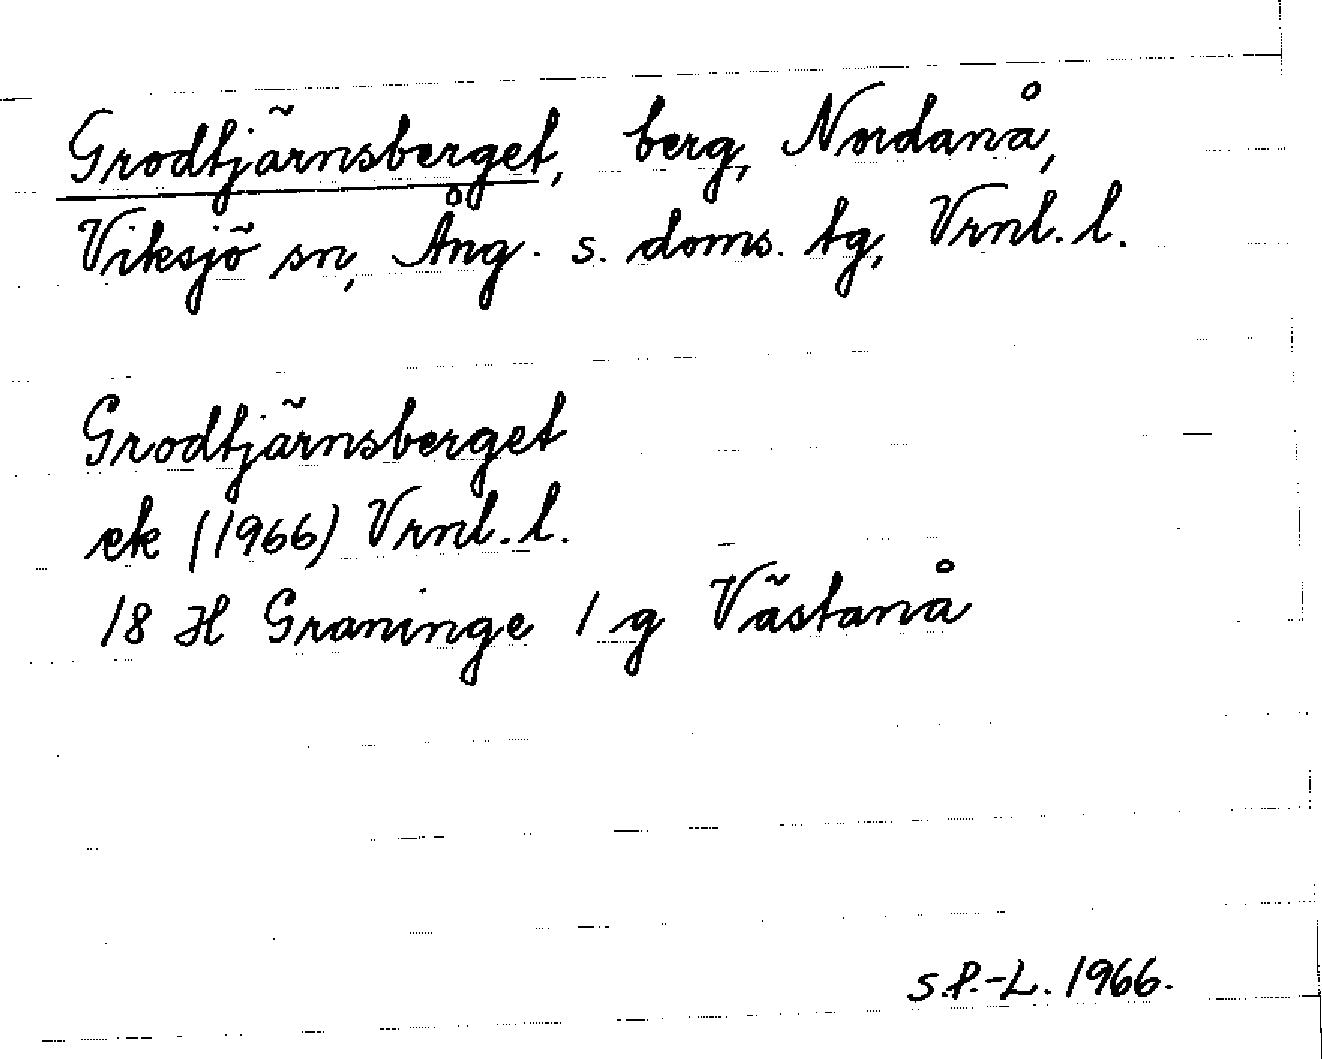 Grodtjärnsberget, berg, Nordanå,
Viksjö sn, Ång. s. doms. tg, Vrnl. l.
Grodtjärnsberget
ek (1966) Vrnl. l.
18 H Graninge 1 g Västanå
S.P.-L. 1966.